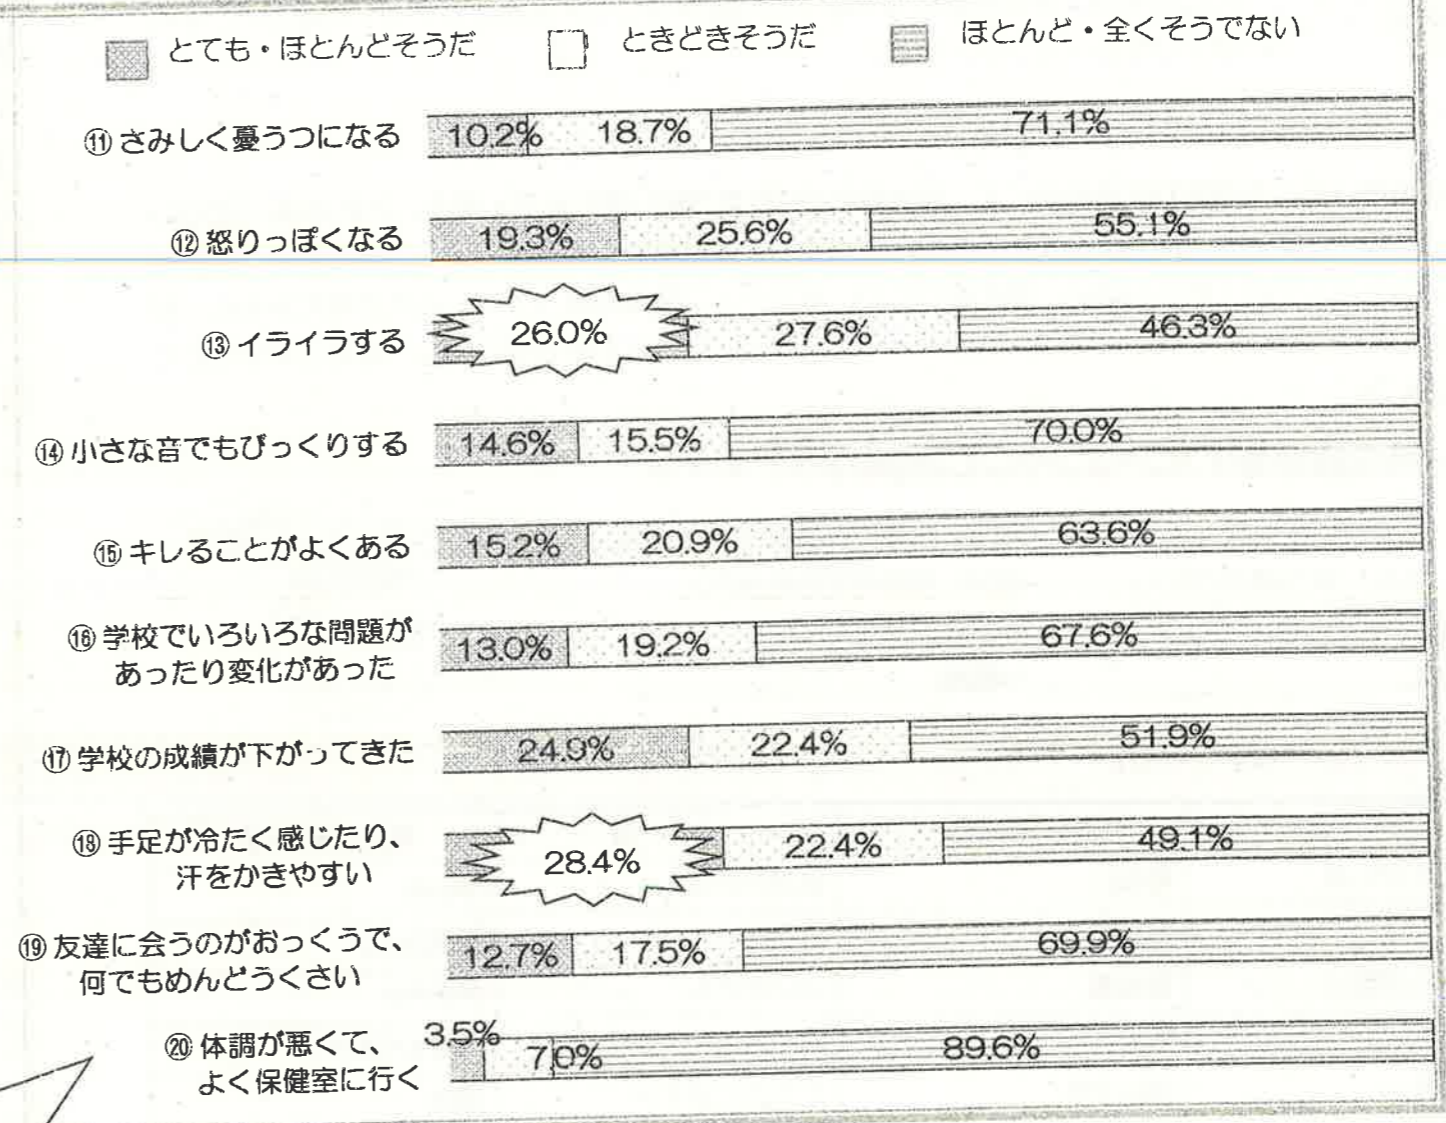 とても・ほとんどそうだ ときどきそうだ ほとんど・全くそうでない
⑪さみしく憂うつになる 10.2% 18.7% 71.1%
⑫怒りっぽくなる 19.3% 25.6% 55.1%
⑬イライラする 26.0% 27.6% 46.3%
⑭小さな音でもびっくりする 14.6% 15.5% 70.0%
⑮キレることがよくある 15.2% 20.9% 63.6%
⑯学校でいろいろな問題が
あったり変化があった 13.0% 19.2% 67.6%
⑰学校の成績が下がってきた 24.9% 22.4% 51.9%
⑱手足が冷たく感じたり、
汗をかきやすい 28.4% 22.4% 49.1%
⑲友達に会うのがおっくうで、
何でもめんどうくさい 12.7% 17.5% 69.9%
⑳体調が悪くて、
よく保健室に行く 3.5% 7.0% 89.6%